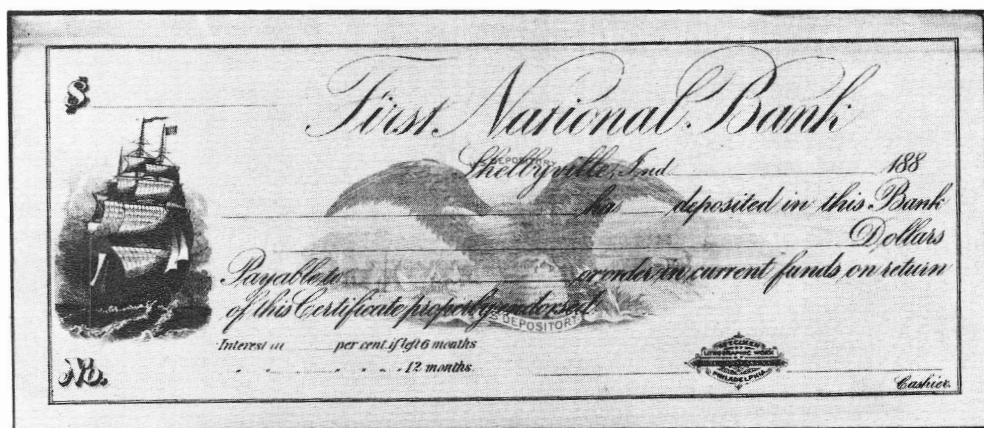 $
First National Bank
U.S. DEPOSITORY
Shelbyville, Ind. 188
ha deposited in this Bank
Dollars
Payable to or order, in current funds, on return
of this Certificate properly endorsed.
U.S DEPOSITORY
Interest at per cent. if left 6 months
" " " " " 12 months.
SPECIMEN
OF
LITHOGRAPHIC WORK
PHILADELPHIA
No.
Cashier.